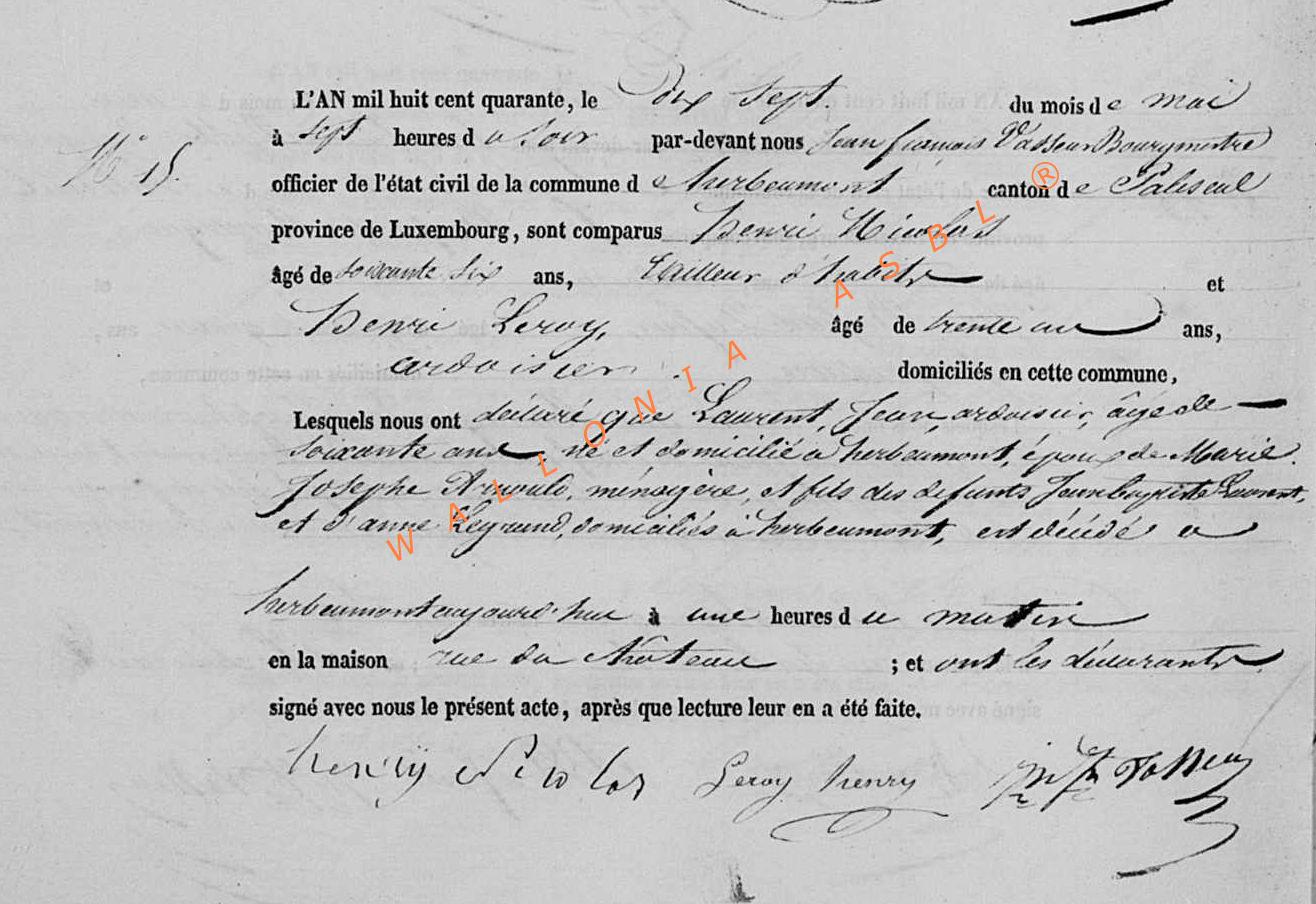 L'AN mil huit cent quarante, le dix sept du mois de mai
N° 15.
à sept heures d u soir par-devant nous Jean françois Vasseur Bourgmestre
officier de l'état civil de la commune d e herbeumont canton d e Paliseul
province de Luxembourg, sont comparus Henri Nicolas
âgé de soixante six ans, tailleur d'habits et
Henri Leroy, âgé de trente un ans,
ardoisier domiciliés en cette commune,
Lesquels nous ont déclaré que Laurent, Jean, ardoisier, âgé de
soixante ans, né et domicilié à herbeumont, époux de Marie
Josephe Arnould, ménagère, et fils des defunts Jean baptiste Laurent,
et d'anne Legrand, domiciliés à herbeumont, est décédé a
herbeumont aujourd'hui à une heures d u matin
en la maison rue du chateau ; et ont les déclarants
signé avec nous le présent acte, après que lecture leur en a été faite.
henrÿ Nicolas Leroy henry
WALLONIA ASBL ®